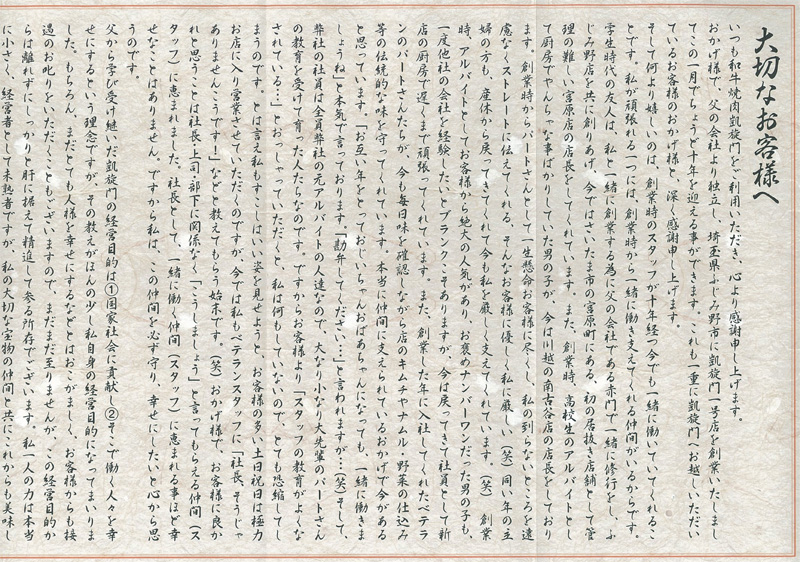 大切なお客様へ
いつも和牛焼肉凱旋門をご利用いただき、心より感謝申し上げます。
おかげ様で、父の会社より独立し、埼玉県ふじみ野市に凱旋門一号店を創業いたしまし
てこの一月でちょうど十年を迎える事ができます。これも一重に凱旋門へお越しいただい
ているお客様のおかげ様と、深く感謝申し上げます。
そして何より嬉しいのは、創業時のスタッフが十年経つ今でも一緒に働いていてくれるこ
とです。私が頑張れる一つには、創業時から一緒に働き支えてくれる仲間がいるからです。
学生時代の友人は、私と一緒に創業する為に父の会社である赤門で一緒に修行をし、ふ
じみ野店を共に創りあげ、今ではさいたま市の宮原町にある、初の居抜き店舗として管
理の難しい宮原店の店長をしてくれています。また、創業時、高校生のアルバイトとし
て厨房でやんちゃな事ばかりしていた男の子が、今は川越の南古谷店の店長をしており
ます。創業時からパートさんとして一生懸命お客様に尽くし、私の到らないところを遠
慮なくストレートに伝えてくれる、そんなお客様に優しく私に厳しい(笑)同い年の主
婦の方も、産休から戻ってきてくれて今も私を厳しく支えてくれています。(笑) 創業
時、アルバイトとしてお客様から絶大の人気があり、お褒めナンバーワンだった男の子も、
一度他社の会社を経験したいとブランクこそありますが、今は戻ってきて社員として新
店の厨房で遅くまで頑張ってくれてます。また、創業した年に入社してくれたベテラ
ンのパートさんたちが、今も毎日味を確認しながら店のキムチやナムル・野菜の仕込み
等の伝統的な味を守ってくれています。本当に仲間に支えられているおかげで今がある
と思っています。「お互い年をとっておじいちゃんおばあちゃんになっても、一緒に働きま
しょうね」と本気で言っております。「勘弁してください…」と言われますが…(笑)そして、
弊社の社員は全員弊社の元アルバイトの人達なので、大なり小なり大先輩のパートさん
の教育を受けて育った人たちなのです。ですからお客様より「スタッフの教育がよくな
されている…」とおっしゃっていただくと、私は何もしていないので、とても恐縮してし
まうのです。とは言え私もすこしはいい姿を見せようと、お客様の多い土日祝日は極力
お店に入り営業させていただくのですが、今では私もベテランスタッフに「社長、そうじゃ
ありませんこうです!」などと教えてもらう始末です。(笑)おかげ様で、お客様に良か
れと思うことは社長・上司・部下に関係なく「こうしましょう」と言ってもらえる仲間(ス
タッフ)に恵まれました。社長として、一緒に働く仲間(スタッフ)に恵まれる事ほど幸
せなことはありません。ですから私は、この仲間を必ず守り、幸せにしたいと心から思
うのです。
父から学び受け継いだ凱旋門の経営目的は①国家社会に貢献し②そこで働く人々を幸
せにするという理念ですが、その教えがほんの少し私自身の経営目的になってまいりま
した。もちろん、まだとても人様を幸せにするなどとはおこがましく、お客様からも接
遇のお叱りをいただくこともございますので、まだまだ至りませんが、この経営目的か
らは離れずにしっかりと肝に据えて精進して参る所存でございます。私一人の力は本当
に小さく、経営者として未熟者ですが、私の大切な宝物の仲間と共にこれからも美味し